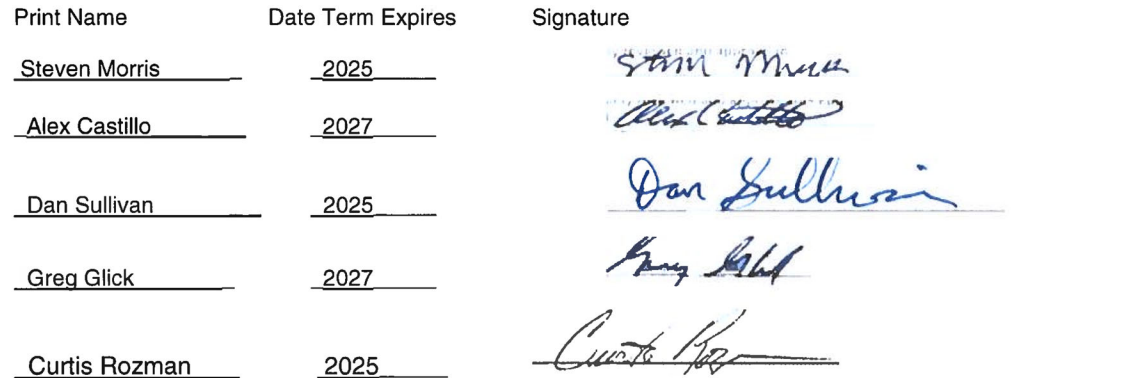 Print Name Date Term Expires Signature
Steven Morris 2025
Alex Castillo 2027 Alex Castillo
Dan Sullivan 2025 Dan Sullivan
Greg Glick 2027
Curtis Rozman 2025 Curtis Roz